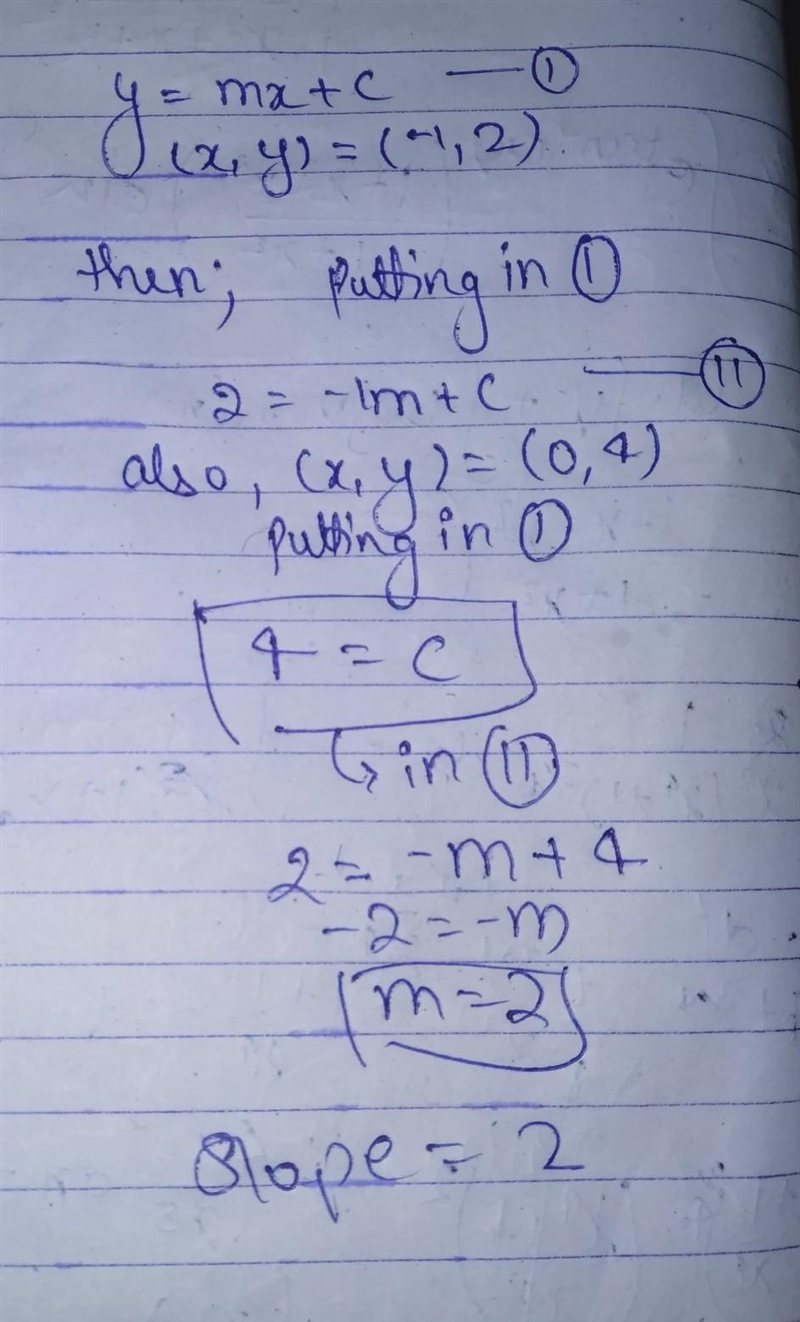 y = mx + c — ①
(x, y) = (-1, 2).
then; putting in ①
2 = -1m + c — ⑪
also, (x, y) = (0, 4)
putting in ①
4 = c
↳ in ⑪
2 = -m + 4
-2 = -m
m = 2
Slope = 2